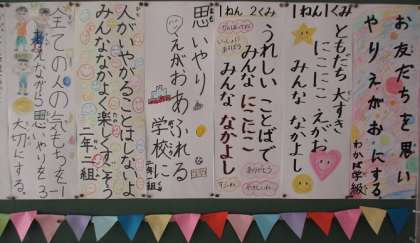 お友だちを思い
やりえがおにする
わかば学級
1ねん1くみ
ともだち大すき
にこにこ えがお
みんな なかよし
1ねん2くみ
うれしい ことばで
みんな にこにこ
みんな なかよし
ありがとう
思いやり
えがお あふれる
学校に
人がいやがることはしないよ
みんななかよく楽しくすごそう
二年二組
全ての人の気もちを
ながら思いやりを
大切にする。